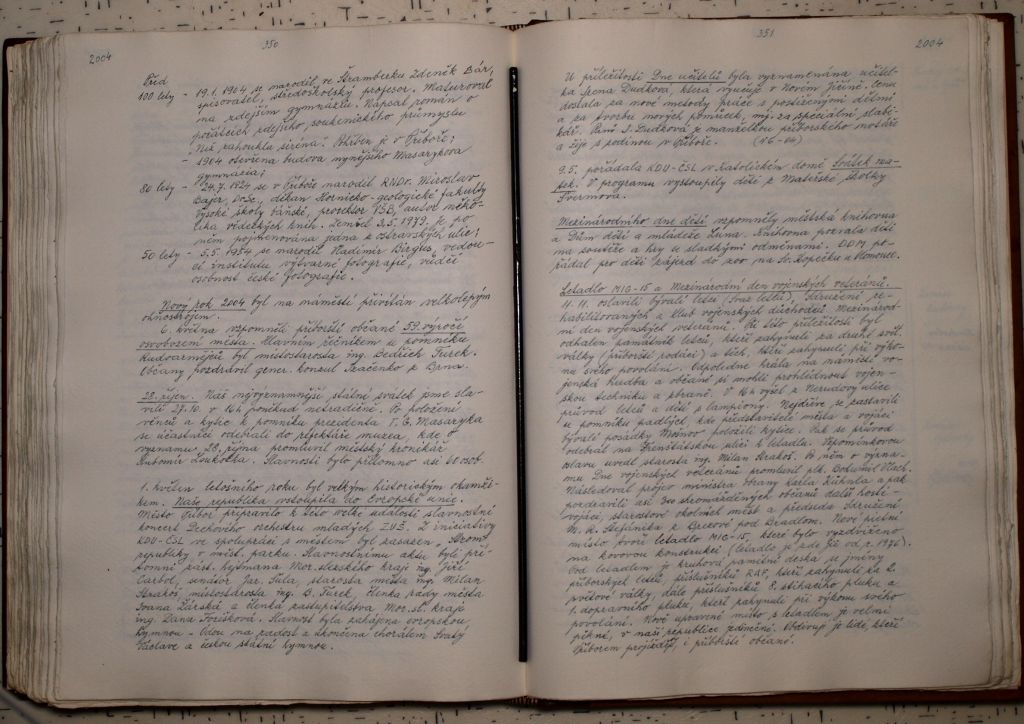 2004
350
Před
100 lety - 19.1.1904 se narodil ve Štramberku Zdeněk Bár,
spisovatel, středoškolský profesor. Maturoval
na zdejším gymnáziu. Napsal román o
počátcích zdejšího soukenického průmyslu
Než zahouká siréna. Pohřben je v Příboře;
- 1904 otevřena budova nynějšího Masarykova
gymnázia;
80 lety - 24.7.1924 se v Příboře narodil RNDr. Miroslav
Bajer, DrSc., děkan Hornicko-geologické fakulty
Vysoké školy báňské, prorektor VŠB, autor něko-
lika vědeckých knih. Zemřel 3.5.1979. Je po
něm pojmenována jedna z ostravských ulic;
50 lety - 5.5.1954 se narodil Vladimír Birgus, vedou-
cí Institutu výtvarné fotografie, vůdčí
osobnost české fotografie.
Nový rok 2004 byl na náměstí přivítán velkolepým
ohňostrojem.
6. května vzpomněli příborští občané 59. výročí
osvobození města. Hlavním řečníkem u pomníku
Rudoarmějců byl místostarosta ing. Bedřich Turek.
Občany pozdravil gener. konzul Tkačenko z Brna.
28. říjen. Náš nejvýznamnější státní svátek jsme sla-
vili 27.10. v 16h poněkud netradičně. Po položení
věnců a kytic k pomníku prezidenta T. G. Masaryka
se účastníci odebrali do refektáře muzea, kde o
významu 28. října promluvil městský kronikář
Antonín Loukotka. Slavnosti bylo přítomno asi 60 osob.
1. květen letošního roku byl velkým historickým okamži-
kem. Naše republika vstoupila do Evropské unie.
Město Příbor připravilo k této velké události slavnostní
koncert Dechového orchestru mladých ZUŠ. Z iniciativy
KDU-ČSL ve spolupráci s městem byl zasazen „Strom
republiky v měst. parku. Slavnostnímu aktu byli pří-
tomni zást. hejtmana Mor.slezského kraje ing. Jiří
Carbol, senátor Jar. Šula, starosta města ing. Milan
Strakoš, místostarosta ing. B. Turek, členka rady města
Ivana Žárská a členka zastupitelstva Mor.sl. kraje
ing. Dana Forišková. Slavnost byla zahájena evropskou
hymnou - Ódou na radost a skončena chorálem Svatý
Václave a českou státní hymnou.
351
2004
U příležitosti Dne učitelů byla vyznamenána učitel-
ka Irena Dudková, která vyučuje v Novém Jičíně. Cenu
dostala za nové metody práce s postiženými dětmi
a za tvorbu nových pomůcek, mj. za speciální slabi-
kář. Paní I. Dudková je manželkou příborského notáře
a žije s rodinou v Příboře. (16-04)
9.5. pořádala KDU-ČSL v Katolickém domě Svátek ma-
tek. V programu vystoupily děti z Mateřské školky
Švermova.
Mezinárodního dne dětí vzpomněly městská knihovna
a Dům dětí a mládeže Luna. Knihovna pozvala děti
na soutěže a hry se sladkými odměnami. DDM po-
řádal pro děti zájezd do zoo na Sv. Kopečku u Olomouce.
Letadlo MIG-15 a Mezinárodní den vojenských veteránů.
4. 11. oslavili bývalí letci (Svaz letců), Sdružení re-
habilitovaných a Klub vojenských důchodců Mezinárod-
ní den vojenských veteránů. Při této příležitosti byl
odhalen památník letců, kteří zahynuli za druhé svět.
války (příborští rodáci) a těch, kteří zahynuli při výko-
nu svého povolání. Odpoledne hrála na náměstí vo-
jenská hudba a občané si mohli prohlédnout vojen-
skou techniku a zbraně. V 16h vyšel z Nerudovy ulice
průvod letců a dětí s lampiony. Nejdříve se zastavili
u pomníku padlých, kde představitelé města a vojáci
bývalé posádky Mošnov položili kytice. Pak se průvod
odebral na Frenštátskou ulici k letadlu. Vzpomínkovou
oslavu uvedl starosta ing. Milan Strakoš. Po něm o význa-
mu Dne vojenských veteránů promluvil plk. Bohumil Vlach.
Následoval projev ministra obrany Karla Kühnla a pak
pozdravili asi 300 shromážděných občanů další hosté -
vojáci, starostové okolních měst a předseda Sdružení
M. R. Štefánika z Brezové pod Bradlom. Nové pietní
místo tvoří letadlo MIG-15, které bylo vyzdviženo
na kovovou konstrukci (letadlo je zde již od r. 1976).
Pod letadlem je kruhová pamětní deska se jmény
příborských letců, příslušníků RAF, kteří zahynuli za 2.
světové války, dále příslušníků 8. stíhacího pluku a
1. dopravního pluku, kteří zahynuli při výkonu svého
povolání. Nově upravené místo s letadlem je velmi
pěkné, v naší republice jedinečné. Obdivují je lidé, kteří
Příborem projíždějí, i příborští občané.